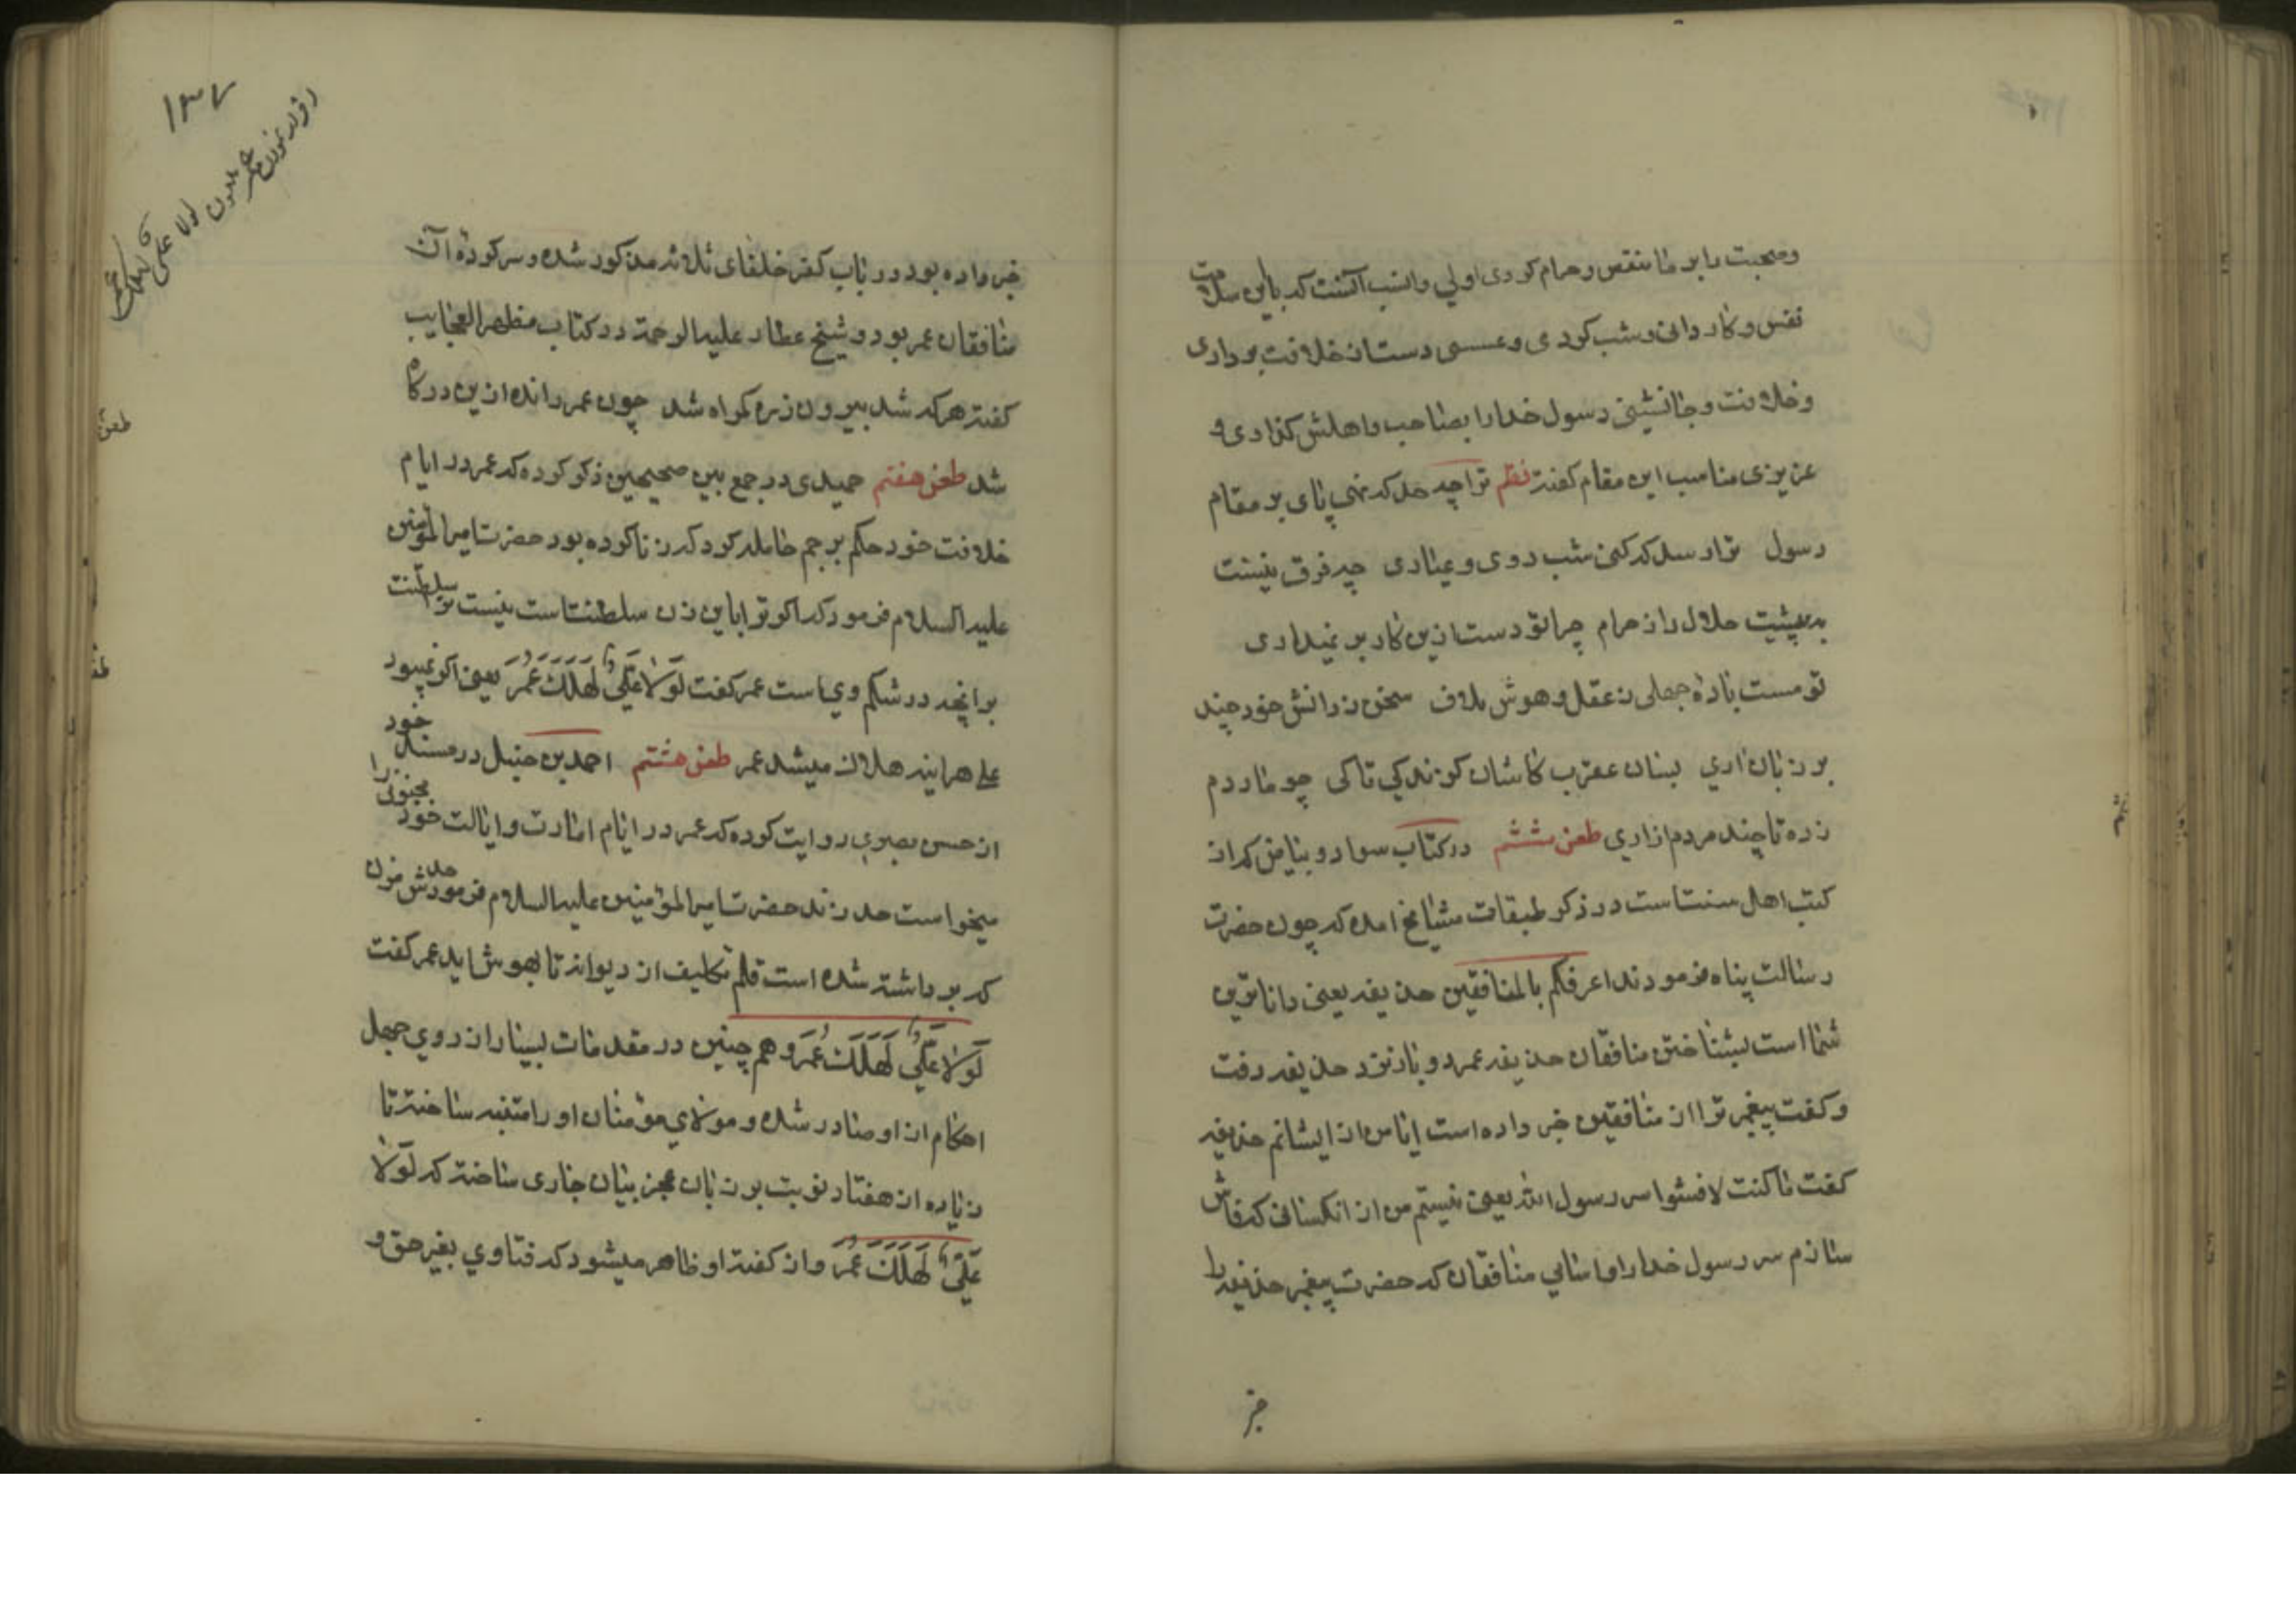 وصحبت را بر ما منغص و حرام کردی اولی وانسب آنست که باین سلامت
نفس و کاردانی و شب کردی و عسسی دست از خلافت برداری
وخلافت وجانشینی رسول خدا را بصاحب واهلش گذاری و
عزیزی مناسب این مقام گفته نظم ترا چه حد که نهی پای بر مقام
رسول ترا رسد که کنی شب روی وعیاری چه فرق نیست
به پیشت حلال را از حرام چرا تو دست ازین کار بر نمیداری
تو مست بادهٔ جهلی ز عقل و هوش ملاف سخن ز دانش خود چند
بر زبان اری بسان عقرب کاشان گزندگی تا کی چو مار دم
زده تا چند مردم ازاری طعن ششم در کتاب سواد و بیاض که از
کتب اهل سنت است در ذکر طبقات مشایخ امده که چون حضرت
رسالت پناه فرمودند اعرفکم بالمنافقین حذیفه یعنی داناترین
شما است بشناختن منافقان حذیفه عمر دو بار نزد حذیفه رفت
وگفت پیغمبر ترا از منافقین خبر داده است ایا من از ایشانم حذیفه
گفت ما کنت لافشوا سر رسول الله یعنی نیستم من از انکسانی که فاش
سازم سر رسول خدا را اما اسامی منافقان که حضرت پیغمبر حذیفه را
خبر
۱۳۷
لولا علی لهلک عمر
خبر داده بود در باب کفر خلفای ثلاثه مذکور شده و سرکردهٔ آن
منافقان عمر بود و شیخ عطار علیه الرحمة در کتاب مظهر العجایب
گفته هر که شد بیرون زره گمراه شد چون عمر رانده ازین درگاه
شد طعن هفتم حمیدی در جمع بین صحیحین ذکر کرده که عمر در ایام
خلافت خود حکم برجم حامله کرد که زنا کرده بود حضرت امیر المؤمنین
علیه السلام فرمود که اگر ترا باین زن سلطنت است نیست ترا سلطنت
بر انچه در شکم وی است عمر گفت لَوْلَا عَلِيٌّ لَهَلَكَ عُمَرُ یعنی اگر نمیبود
علی هراینه هلاک میشد عمر طعن هشتم احمد بن حنبل در مسند خود
از حسن بصری روایت کرده که عمر در ایام امارت و ایالت خود مجنونی را
میخواست حد زند حضرت امیر المؤمنین علیه السلام فرمود حدش مزن
که بر داشته شده است قلم تکلیف از دیوانه تا بهوش اید عمر گفت
لَوْلَا عَلِيٌّ لَهَلَكَ عُمَرُ و هم چنین در مقدمات بسیار از روی جهل
احکام از او صادر شده و مولای مؤمنان او را متنبه ساخته تا
زیاده از هفتاد نوبت بر زبان عجز بیان جاری ساخته که لَوْلَا
عَلِيٌّ لَهَلَكَ عُمَرُ و از گفته او ظاهر میشود که فتاوی بغیر حق و
طعن